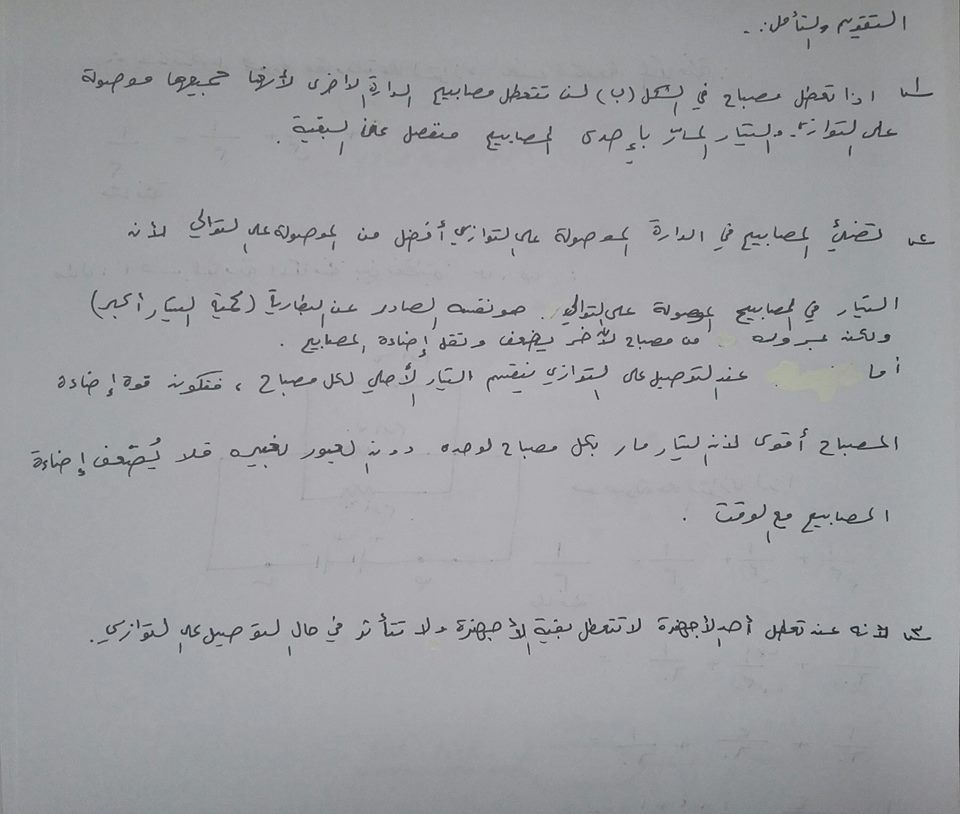 التقويم والتأمل:.
س١ اذا تعطل مصباح في الشكل (ب) لن تتعطل مصابيح الدارة الاخرى لأنها جميعها موصولة
على التوازي. والتيار المارّ بإحدى المصابيح منفصل عن البقية.
س٢ تضيئ المصابيح في الدارة الموصولة على التوازي أفضل من الموصولة على التوالي لأن
التيار في المصابيح الموصولة على التوالي هو نفسه الصادر عن البطارية (كمية التيار أكبر)
ولكنه عبروره من مصباح لآخر يضعف وتقل إضاءة المصابيح.
أما عند التوصيل على التوازي ينقسم التيار الأصلي لكل مصباح، فتكون قوة إضاءة
المصباح أقوى لأن التيار مار بكل مصباح لوحده دون العبور لغيره فلا يُضعف إضاءة
المصابيح مع الوقت.
س٣ لأنه عند تعطل أحد الأجهزة لا تتعطل بقية الأجهزة ولا تتأثر في حال التوصيل على التوازي.